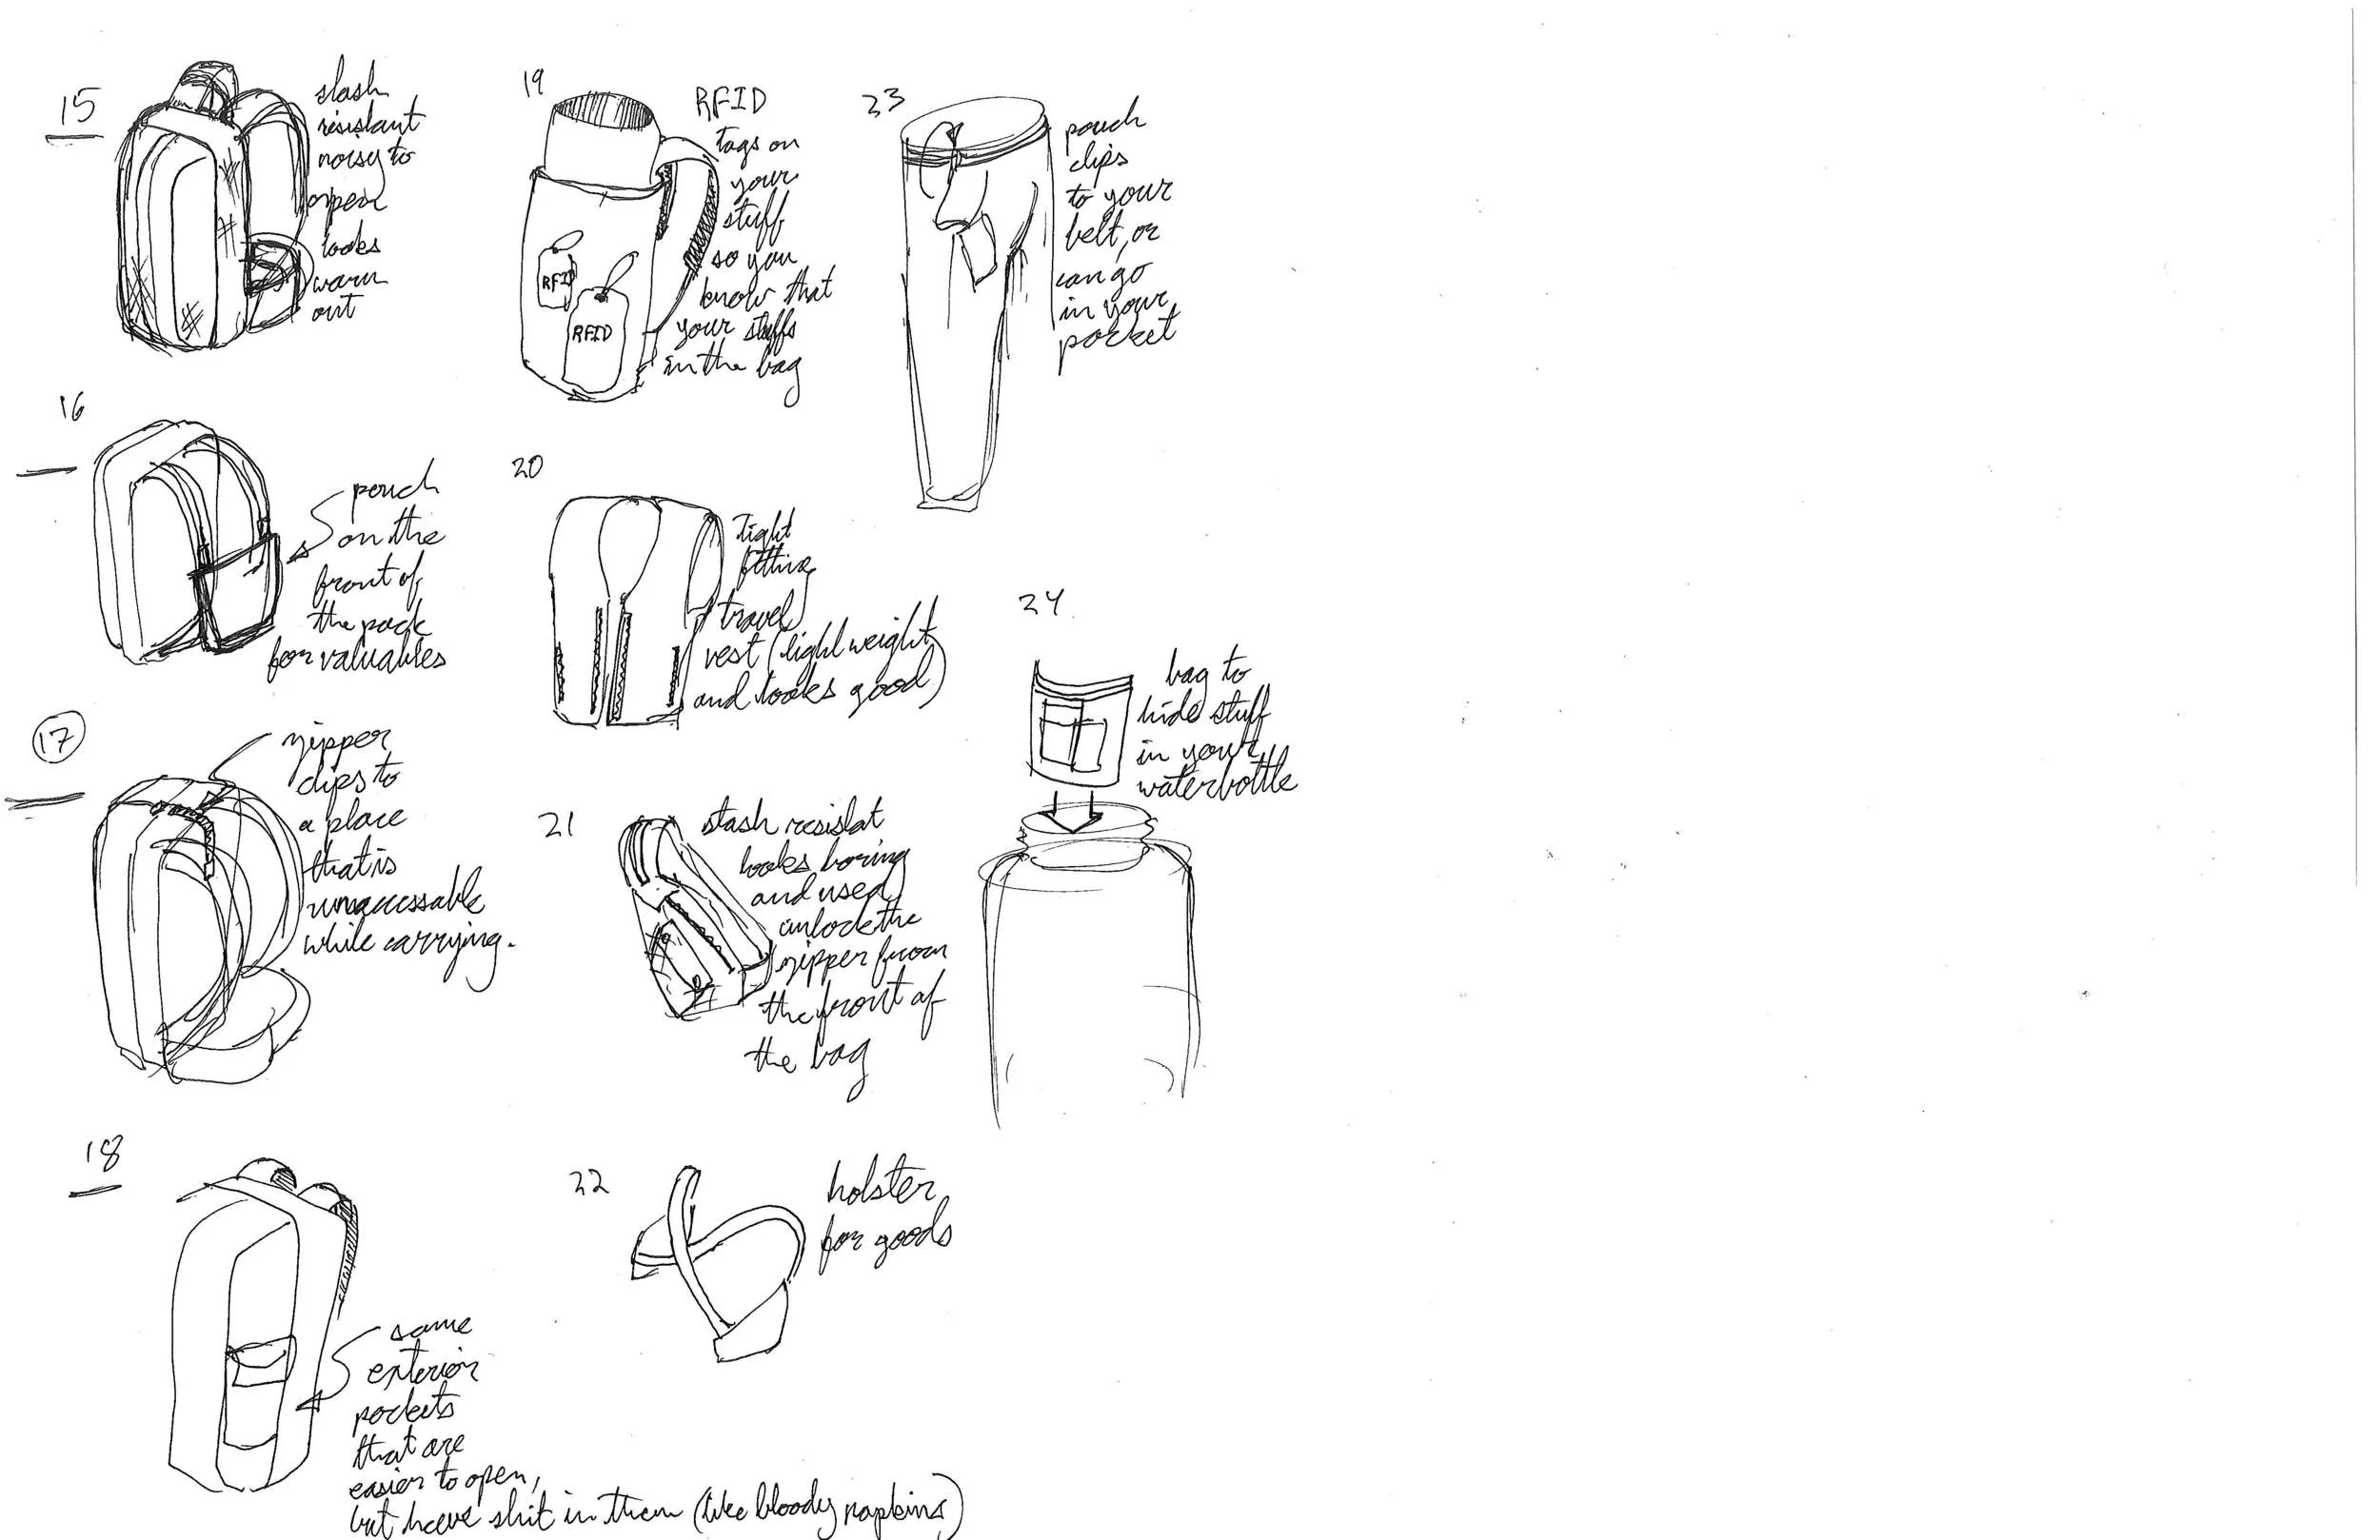 15
slash
resistant
noisy to
open
looks
warn
out
16
pouch
on the
front of
the pack
for valuables
17
zipper
clips to
a place
that is
unaccessable
while carrying.
18
some
exterior
pockets
that are
easier to open,
but have shit in them (like bloody napkins)
19
RFID
tags on
your
stuff
so you
know that
your stuffs
in the bag
RFID
RFID
20
Tight
fitting
travel
vest (light weight
and looks good)
21
slash resislat
looks boring
and used
unlock the
zipper from
the front of
the bag
22
holster
for goods
23
pouch
clips
to your
belt, or
can go
in your
pocket
24
bag to
hide stuff
in your
waterbottle